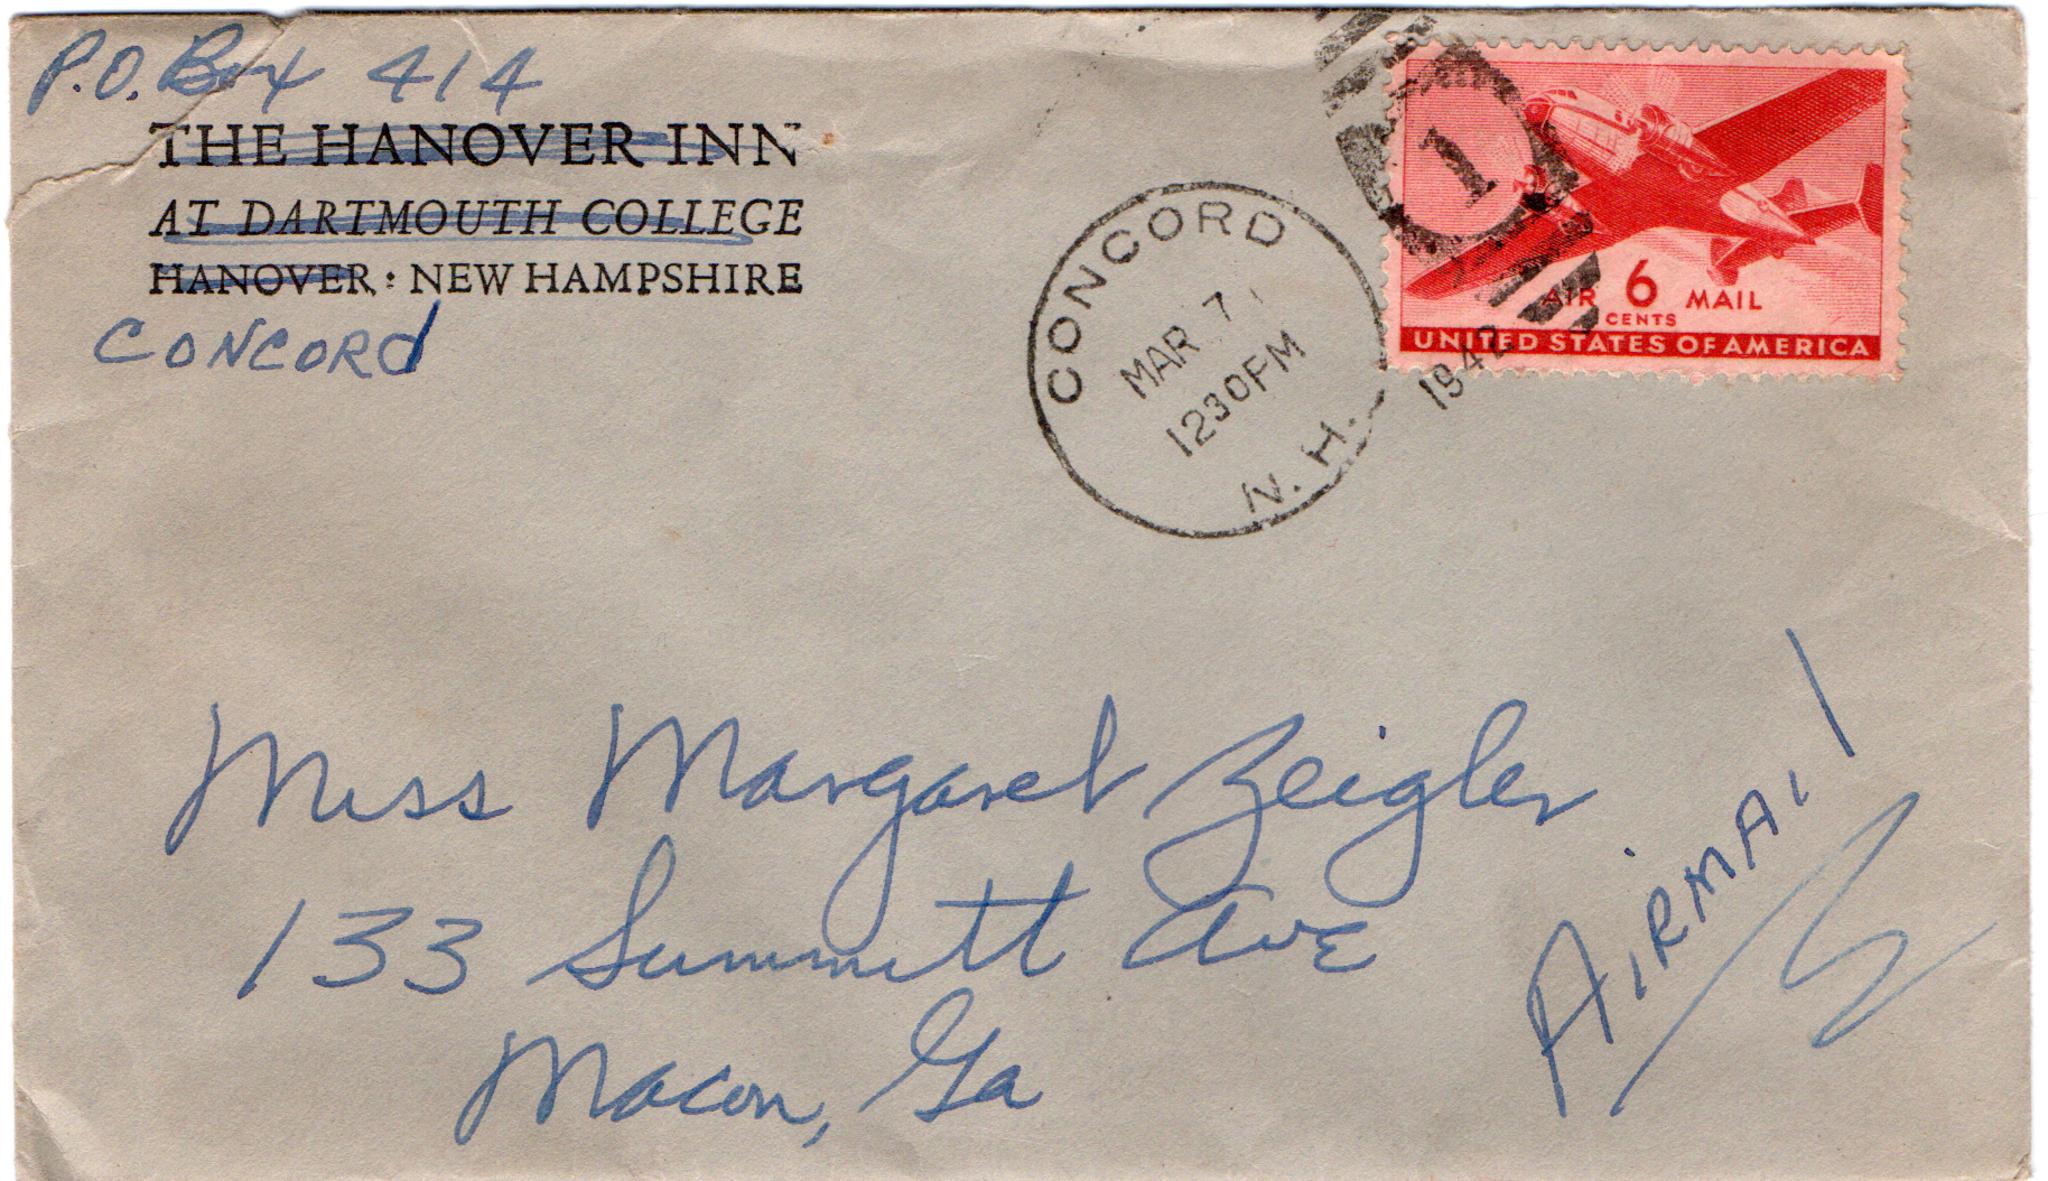 P.O. Box 414
THE HANOVER INN
AT DARTMOUTH COLLEGE
HANOVER : NEW HAMPSHIRE
CONCORD
CONCORD
MAR 7
1230PM
N. H.
1942
1
AIR 6 MAIL
CENTS
UNITED STATES OF AMERICA
Miss Margaret Zeigler
133 Summitt Ave
Macon, Ga
AIRMAIL